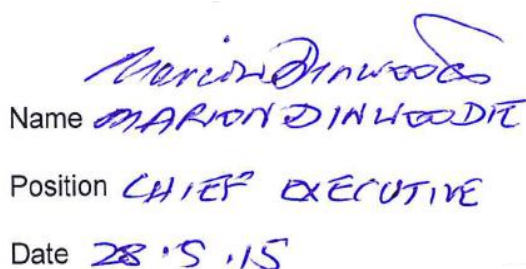 Marion Dinwoodie
Name MARION DINWOODIE
Position CHIEF EXECUTIVE
Date 28.5.15